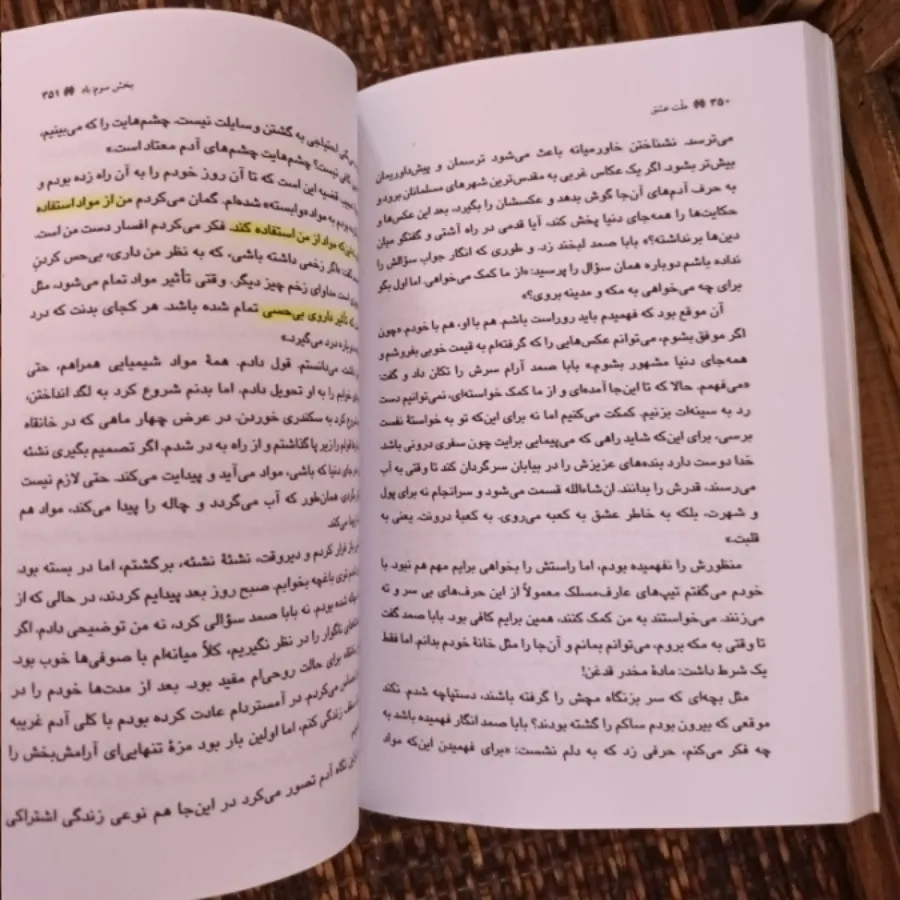 ۳۵۰ ملّت عشق
می‌ترسد. نشناختن خاورمیانه باعث می‌شود ترسمان و پیش‌داوریمان
بیش‌تر بشود. اگر یک عکاس غربی به مقدس‌ترین شهرهای مسلمانان برود و
به حرف آدم‌های آن‌جا گوش بدهد و عکسشان را بگیرد، بعد این عکس‌ها و
حکایت‌ها را همه‌جای دنیا پخش کند، آیا قدمی در راه آشتی و گفتگو میان
دین‌ها برنداشته؟» بابا صمد لبخند زد. و طوری که انگار جواب سؤالش را
نداده باشم دوباره همان سؤال را پرسید: «از ما کمک می‌خواهی. اما اول بگو
برای چه می‌خواهی به مکه و مدینه بروی؟»
آن موقع بود که فهمیدم باید روراست باشم. هم با او، هم با خودم. «چون
اگر موفق بشوم، می‌توانم عکس‌هایی را که گرفته‌ام به قیمت خوبی بفروشم و
همه‌جای دنیا مشهور بشوم.» بابا صمد آرام سرش را تکان داد و گفت
«می‌فهمم. حالا که تا این‌جا آمده‌ای و از ما کمک خواسته‌ای، نمی‌توانیم دست
رد به سینه‌ات بزنیم. کمکت می‌کنیم اما نه برای این‌که تو به خواستهٔ نفست
برسی، برای این‌که شاید راهی که می‌پیمایی برایت چون سفری درونی باشد
خدا دوست دارد بنده‌های عزیزش را در بیابان سرگردان کند تا وقتی به آب
می‌رسند، قدرش را بدانند. ان‌شاءالله قسمت می‌شود و سرانجام نه برای پول
و شهرت، بلکه به خاطر عشق به کعبه می‌روی. به کعبهٔ درونت. یعنی به
قلبت.»
منظورش را نفهمیده بودم، اما راستش را بخواهی برایم مهم هم نبود. با
خودم می‌گفتم تیپ‌های عارف‌مسلک معمولاً از این حرف‌های بی سر و ته
می‌زنند. می‌خواستند به من کمک کنند، همین برایم کافی بود. بابا صمد گفت
تا وقتی به مکه بروم، می‌توانم بمانم و آن‌جا را مثل خانهٔ خودم بدانم. اما فقط
یک شرط داشت: مادهٔ مخدر قدغن!
مثل بچه‌ای که سر بزنگاه مچش را گرفته باشند، دستپاچه شدم. نکند
موقعی که بیرون بودم ساکم را گشته بودند؟ بابا صمد انگار فهمیده باشد به
چه فکر می‌کنم، حرفی زد که به دلم نشست: «برای فهمیدن این‌که مواد
بخش سوم: باد ۳۵۱
احتیاجی به گشتن وسایلت نیست. چشم‌هایت را که می‌بینیم،
نیست؟ چشم‌هایت چشم‌های آدم معتاد است.»
قضیه این است که تا آن روز خودم را به آن راه زده بودم و
بودم به مواد «وابسته» شده‌ام. گمان می‌کردم من از مواد استفاده
مواد از من استفاده کند. فکر می‌کردم افسار دست من است.
«اگر زخمی داشته باشی، که به نظر من داری، بی‌حس کردنِ
است مداوای زخم چیز دیگر. وقتی تأثیر مواد تمام می‌شود، مثل
تأثیر داروی بی‌حسی تمام شده باشد. هر کجای بدنت که درد
دوباره درد می‌گیرد.»
می‌دانستم. قول دادم. همهٔ مواد شیمیایی همراهم، حتی
خوابم را به او تحویل دادم. اما بدنم شروع کرد به لگد انداختن،
کرد به سکندری خوردن. در عرض چهار ماهی که در خانقاه
را زیر پا گذاشتم و از راه به در شدم. اگر تصمیم بگیری نشئه
جای دنیا که باشی، مواد می‌آید و پیدایت می‌کند. حتی لازم نیست
همان‌طور که آب می‌گردد و چاله را پیدا می‌کند، مواد هم
پیدا می‌کند.
باز فرار کردم و دیروقت، نشئهٔ نشئه، برگشتم، اما در بسته بود.
توی باغچه بخوابم. صبح روز بعد پیدایم کردند، در حالی که از
شده بودم. نه بابا صمد سؤالی کرد، نه من توضیحی دادم. اگر
ناگوار را در نظر نگیریم، کلاً میانه‌ام با صوفی‌ها خوب بود.
برای حالت روحی‌ام مفید بود. بعد از مدت‌ها خودم را در
می‌کردم. در آمستردام عادت کرده بودم با کلی آدم غریبه
زندگی کنم، اما اولین بار بود مزهٔ تنهایی‌ای آرامش‌بخش را
نگاه آدم تصور می‌کرد در این‌جا هم نوعی زندگی اشتراکی